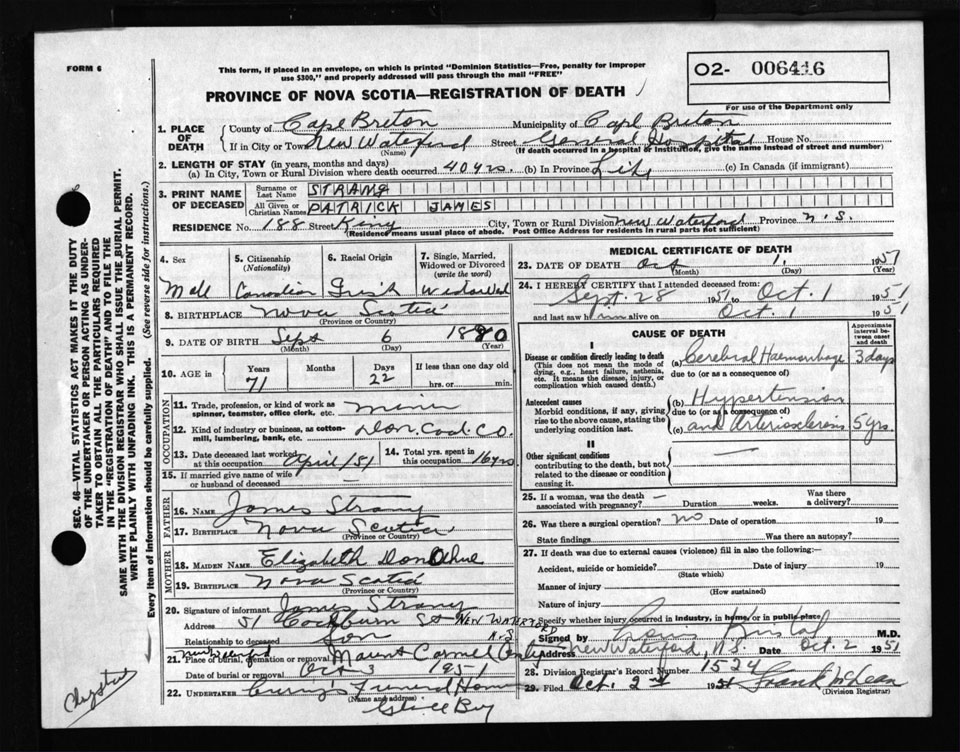 FORM 6
This form, if placed in an envelope, on which is printed "Dominion Statistics—Free, penalty for improper
use $300," and properly addressed will pass through the mail "FREE"
O2- 006416
For use of the Department only
PROVINCE OF NOVA SCOTIA—REGISTRATION OF DEATH
1. PLACE OF DEATH
County of Cape Breton Municipality of Cape Breton
If in City or Town New Waterford Street General Hospital House No.
(Name) (If death occurred in a hospital or institution, give the name instead of street and number)
2. LENGTH OF STAY (in years, months and days)
(a) In City, Town or Rural Division where death occurred 40 yrs. (b) In Province Life (c) In Canada (if immigrant)
3. PRINT NAME OF DECEASED
Surname or Last Name STRANG
All Given or Christian Names PATRICK JAMES
RESIDENCE No. 188 Street King City, Town or Rural Division New Waterford Province N.S.
(Residence means usual place of abode. Post Office Address for residents in rural parts not sufficient)
4. Sex
Male
5. Citizenship (Nationality)
Canadian
6. Racial Origin
Irish
7. Single, Married, Widowed or Divorced (write the word)
Widowed
8. BIRTHPLACE Nova Scotia
(Province or Country)
9. DATE OF BIRTH Sept 6 1880
(Month) (Day) (Year)
10. AGE in Years 71 Months Days 22 If less than one day old hrs. or min.
OCCUPATION
11. Trade, profession, or kind of work as spinner, teamster, office clerk, etc. miner
12. Kind of industry or business, as cotton-mill, lumbering, bank, etc. Dom. Coal. Co.
13. Date deceased last worked at this occupation April/51
14. Total yrs. spent in this occupation 16 yrs
15. If married give name of wife or husband of deceased
FATHER
16. NAME James Strang
17. BIRTHPLACE Nova Scotia
(Province or Country)
MOTHER
18. MAIDEN NAME Elizabeth Donohue
19. BIRTHPLACE Nova Scotia
(Province or Country)
20. Signature of informant James Strang
Address 51 Cockburn St NEW WATERFORD N.S
Relationship to deceased Son
21. Place of burial, cremation or removal Mount Carmel New Waterford
Date of burial or removal Oct 3 1951
22. UNDERTAKER Curry's Funeral Home
(Name and address)
Glace Bay
MEDICAL CERTIFICATE OF DEATH
23. DATE OF DEATH Oct 1, 1951
(Month) (Day) (Year)
24. I HEREBY CERTIFY that I attended deceased from:
Sept. 28 1951 to Oct. 1 1951
and last saw him alive on Oct. 1 1951
CAUSE OF DEATH
Approximate interval between onset and death
I
Disease or condition directly leading to death
(This does not mean the mode of dying, e.g., heart failure, asthenia, etc. It means the disease, injury, or complication which caused death.)
(a) Cerebral Haemorrhage 3 days
due to (or as a consequence of)
Antecedent causes
Morbid conditions, if any, giving rise to the above cause, stating the underlying condition last.
(b) Hypertension
due to (or as a consequence of)
(c) and Arteriosclerosis 5 yrs.
II
Other significant conditions
contributing to the death, but not related to the disease or condition causing it.
25. If a woman, was the death associated with pregnancy? — Duration weeks. Was there a delivery?
26. Was there a surgical operation? no Date of operation 19
State findings Was there an autopsy?
27. If death was due to external causes (violence) fill in also the following:—
Accident, suicide or homicide? Date of injury 19
(State which)
Manner of injury
(How sustained)
Nature of injury
Specify whether injury occurred in industry, in home, or in public place
Signed by M.D.
Address New Waterford, N.S. Date Oct. 2 1951
28. Division Registrar's Record Number 1524
29. Filed Oct. 2nd 1951 Frank McLean
(Division Registrar)
SEC. 46—VITAL STATISTICS ACT MAKES IT THE DUTY
OF THE UNDERTAKER OR PERSON ACTING AS UNDER-
TAKER TO OBTAIN ALL THE PARTICULARS REQUIRED
IN THE "REGISTRATION OF DEATH" AND TO FILE THE
SAME WITH THE DIVISION REGISTRAR WHO SHALL ISSUE THE BURIAL PERMIT.
WRITE PLAINLY WITH UNFADING INK. THIS IS A PERMANENT RECORD.
Every item of information should be carefully supplied. (See reverse side for instructions.)